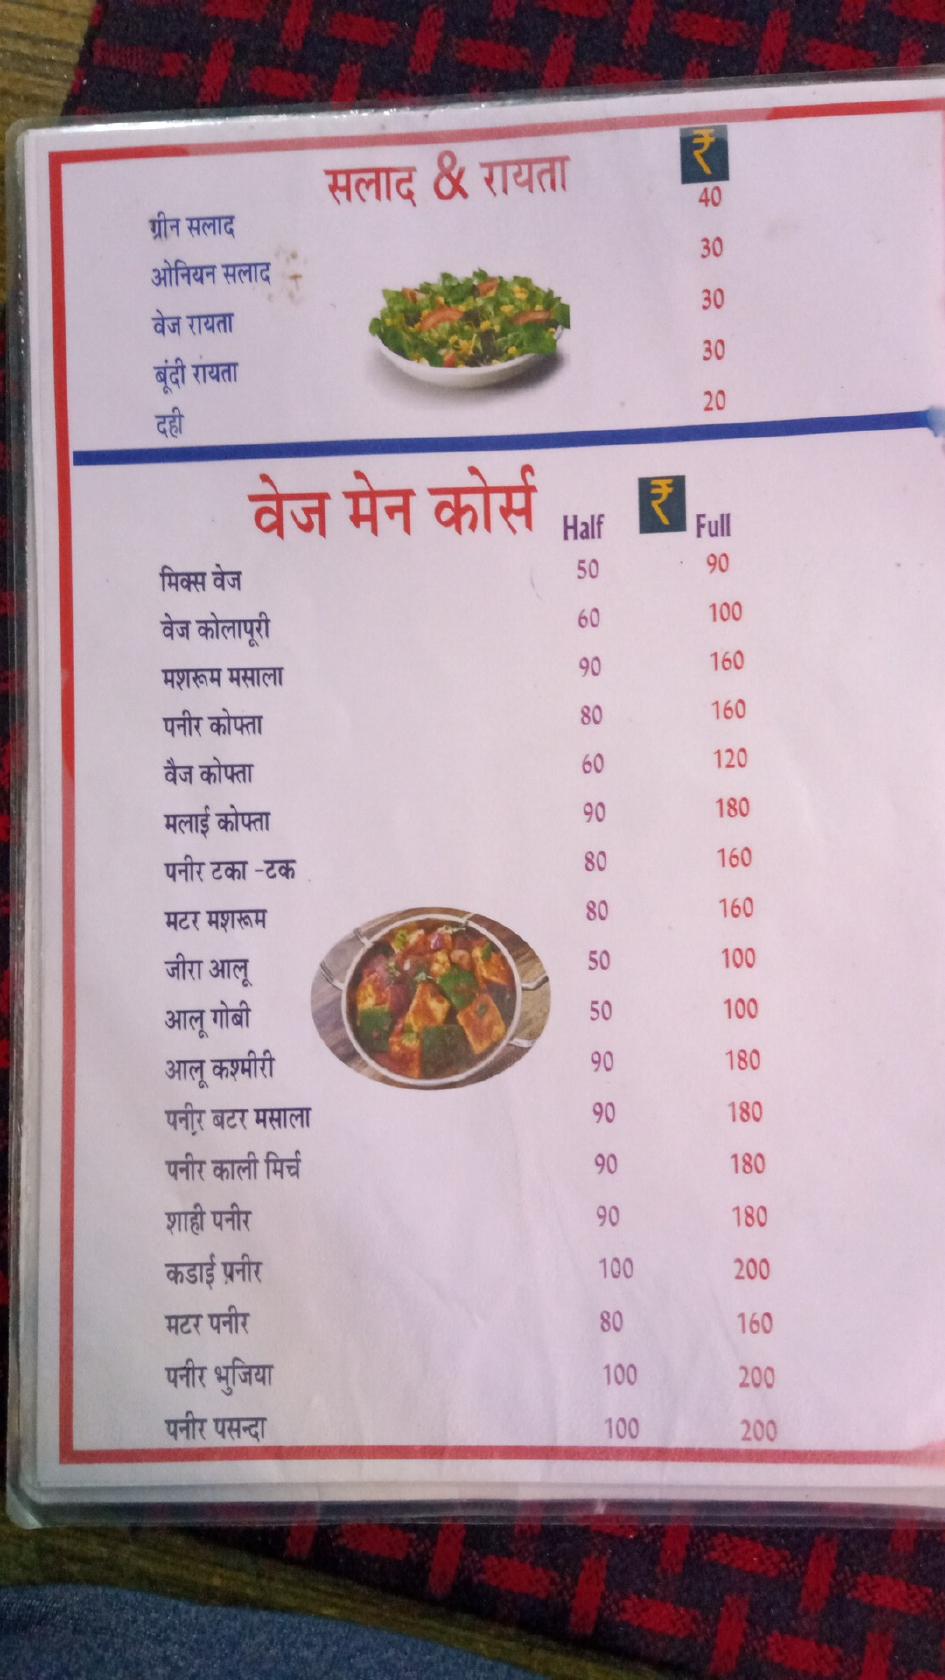 सलाद & रायता ₹
ग्रीन सलाद 40
ओनियन सलाद 30
वेज रायता 30
बूंदी रायता 30
दही 20
वेज मेन कोर्स Half ₹ Full
मिक्स वेज 50 90
वेज कोलापूरी 60 100
मशरूम मसाला 90 160
पनीर कोफ्ता 80 160
वैज कोफ्ता 60 120
मलाई कोफ्ता 90 180
पनीर टका -टक 80 160
मटर मशरूम 80 160
जीरा आलू 50 100
आलू गोबी 50 100
आलू कश्मीरी 90 180
पनीर बटर मसाला 90 180
पनीर काली मिर्च 90 180
शाही पनीर 90 180
कडाई पनीर 100 200
मटर पनीर 80 160
पनीर भुजिया 100 200
पनीर पसन्दा 100 200